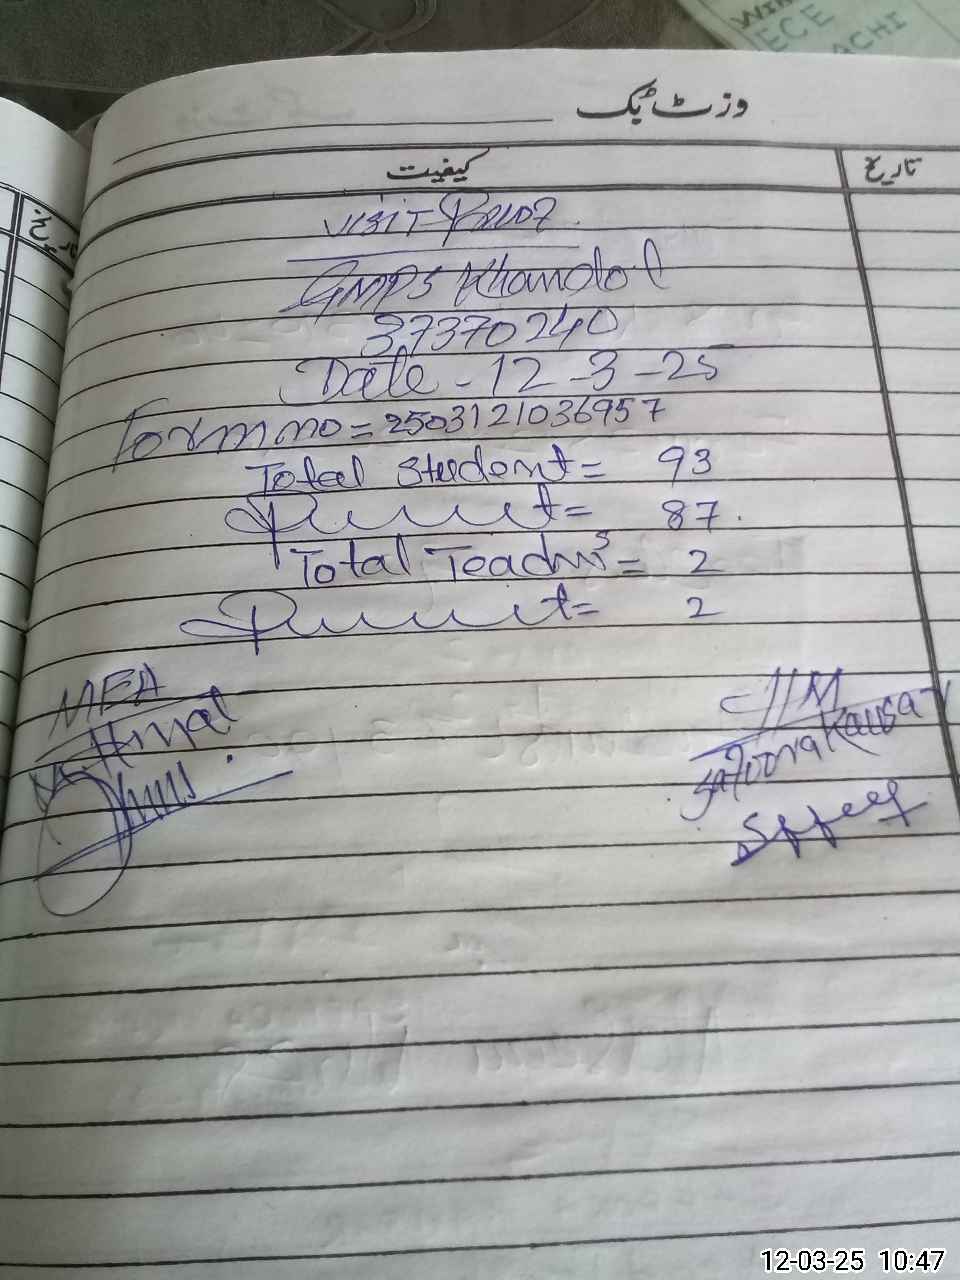 وزٹ بک
تاریخ
کیفیت
تاریخ
Visit Proof
GMPS Khandol
37370240
Date - 12-3-25
Form no = 2503121036957
Total Student = 93
Present = 87
Total Teachers = 2
Present = 2
MEA
H/M
Kausar
ECE
12-03-25 10:47